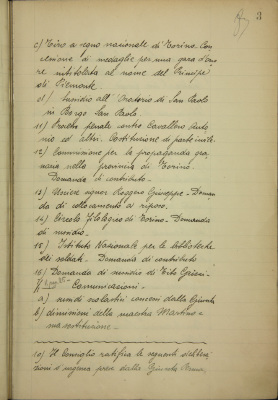 3
c) Tiro a segno nazionale di Torino. Con
cessione di medaglie per una gara d'ono
re intitolata al nome del Principe
di Piemonte
d) Sussidio all'Oratorio di San Paolo
in Borgo San Paolo
11) Processo penale contro Cavallero Anto
nio ed altri. Costituzione di parte civile.
12) Commissione per la propaganda gra
naria nella provincia di Torino.
Domanda di contributo.
13) Usciere signor Roggero Giuseppe - Doman
da di collocamento a riposo.
14) Circolo Filologico di Torino - Domanda
di sussidio.
15) Istituto Nazionale per le biblioteche
dei soldati - Domanda di contributo
16) Domanda di sussidio di Tito Grieni.
Comunicazioni -
a) sussidi scolastici concessi dalla Giunta
b) dimissioni della maestra Martino e
sua sostituzione -
10) Il Consiglio ratifica le seguenti delibera
zioni d'urgenza prese dalla Giunta